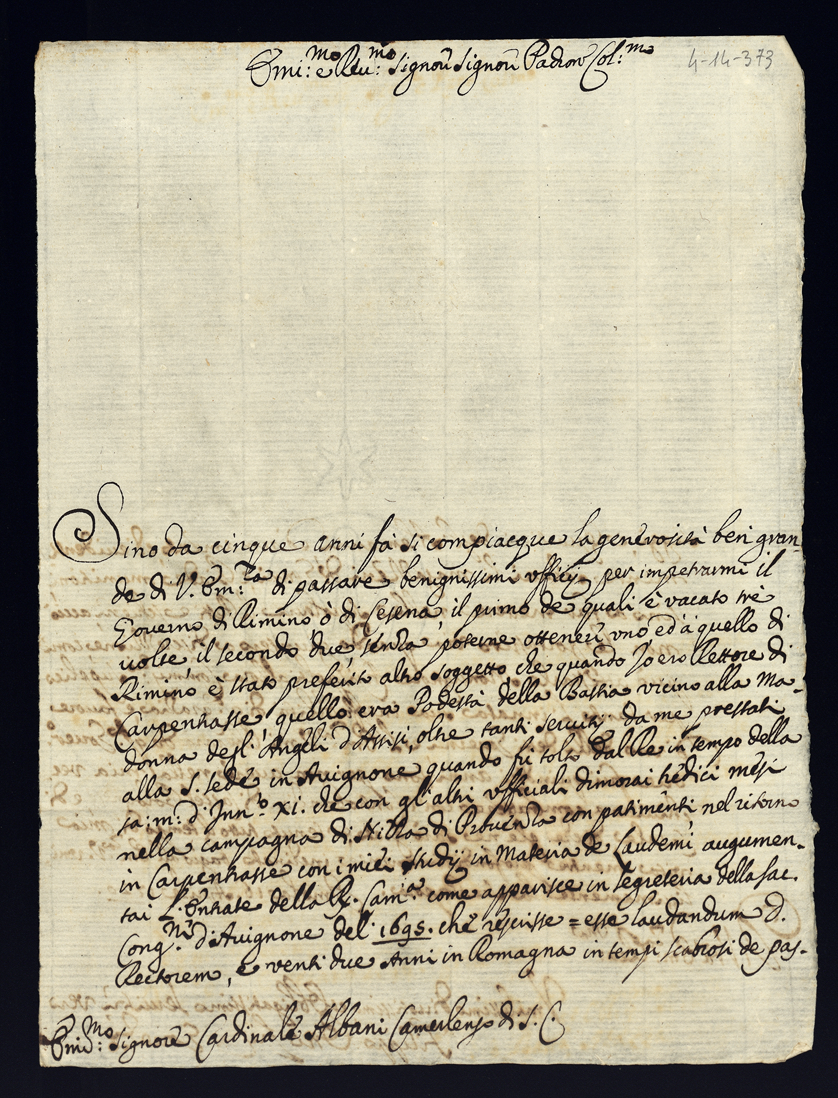 Emi:mo e Reu:mo Signor Signor Padron Col:mo
4-14-373
Sino da cinque anni fà si compiacque la generosità ben gran-
de di V. Em:za di passare benignissimi vfficij per impetrarmi il
Gouerno di Rimino ò di Cesena, il primo de quali è vacato trè
volte, il secondo due, senza poterne ottener vno ed à quello di
Rimino è stato preferito altro soggetto che quando Io ero Rettore di
Carpentrasse quello era Podestà della Bastia vicino alla Ma-
donna degl'Angeli d'Assisi, oltre tanti seruitij da me prestati
alla S. Sede in Auignone quando fù tolto dal Re in tempo della
sa: m: d'Inn:o XI. che con gl'altri vfficiali dimorai sedici mesi
nella campagna di Nizza di Prouenza con patimenti nel ritorno
in Carpentrasse con i miei studij in Materia de Laudemi augumen-
tai l'Entrate della R. Cam:a come apparisce in segreteria della sac.
Cong:ne d'Auignone del 1695. che rescrisse = esse laudandum D.
Rectorem, e venti due Anni in Romagna in tempi scabrosi de pas-
Emi:mo Signore Cardinale Albani Camerlengo di S. C.